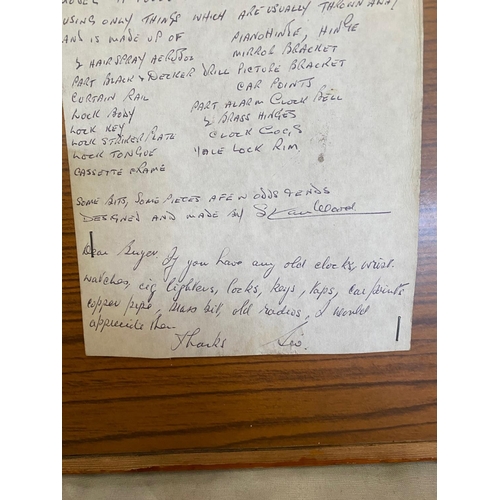 USING ONLY THINGS WHICH ARE USUALLY THROWN AWAY
AND IS MADE UP OF
½ HAIRSPRAY AEROSOL
PART BLACK & DECKER DRILL
CURTAIN RAIL
LOCK BODY
LOCK KEY
LOCK STRIKER PLATE
LOCK TONGUE
CASSETTE FRAME
PIANO HINGE, HINGE
MIRROR BRACKET
PICTURE BRACKET
CAR POINTS
PART ALARM CLOCK BELL
½ BRASS HINGES
CLOCK COGS
YALE LOCK RIM
SOME BITS, SOME PIECES A FEW ODDS & ENDS
DESIGNED AND MADE BY
Dear Buyer If you have any old clocks, wrist-
watches, cig lighters, locks, keys, taps, car points
copper pipe, brass bit, old radios, I would
appreciate them
Thanks